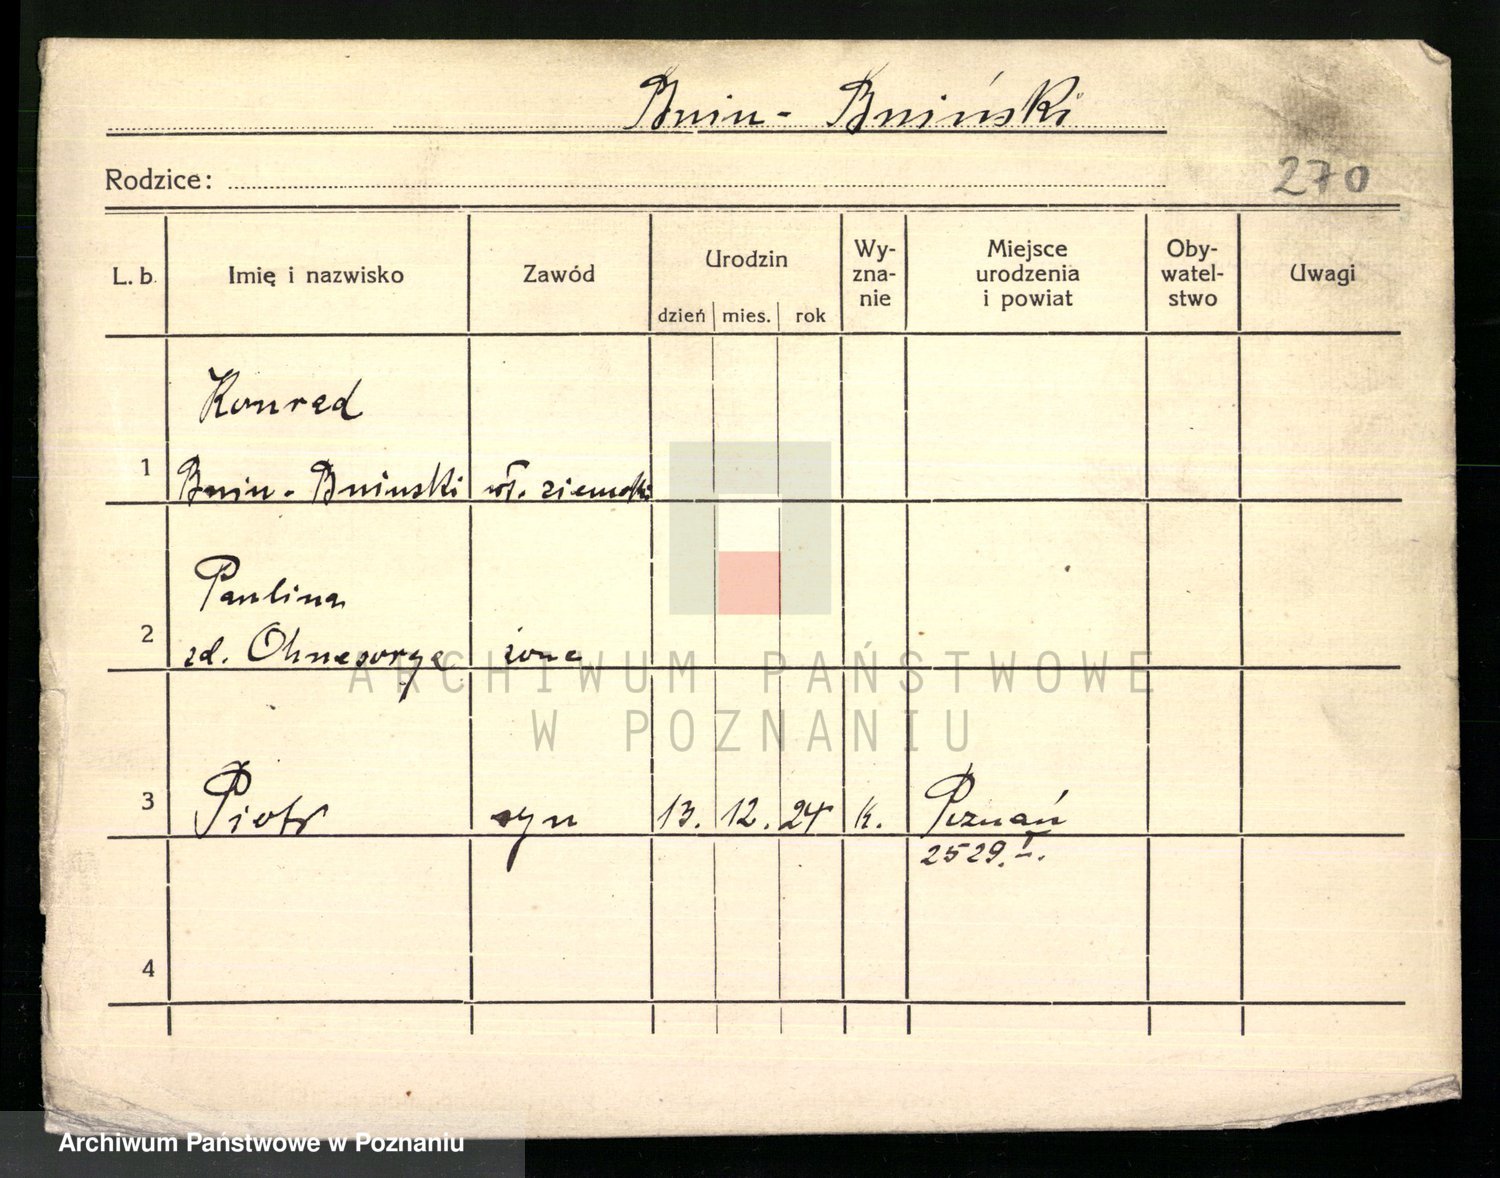 Bnin - Bniński
Rodzice:
270
L. b.
Imię i nazwisko
Zawód
Urodzin
dzień mies. rok
Wy-
zna-
nie
Miejsce
urodzenia
i powiat
Oby-
watel-
stwo
Uwagi
Konrad
1 Bnin - Bninski wł. ziemski
Paulina
2 zd. Ohnesorge żona
3 Piotr syn 13. 12. 24 k. Poznań
2529. I.
4
ARCHIWUM PAŃSTWOWE
W POZNANIU
Archiwum Państwowe w Poznaniu